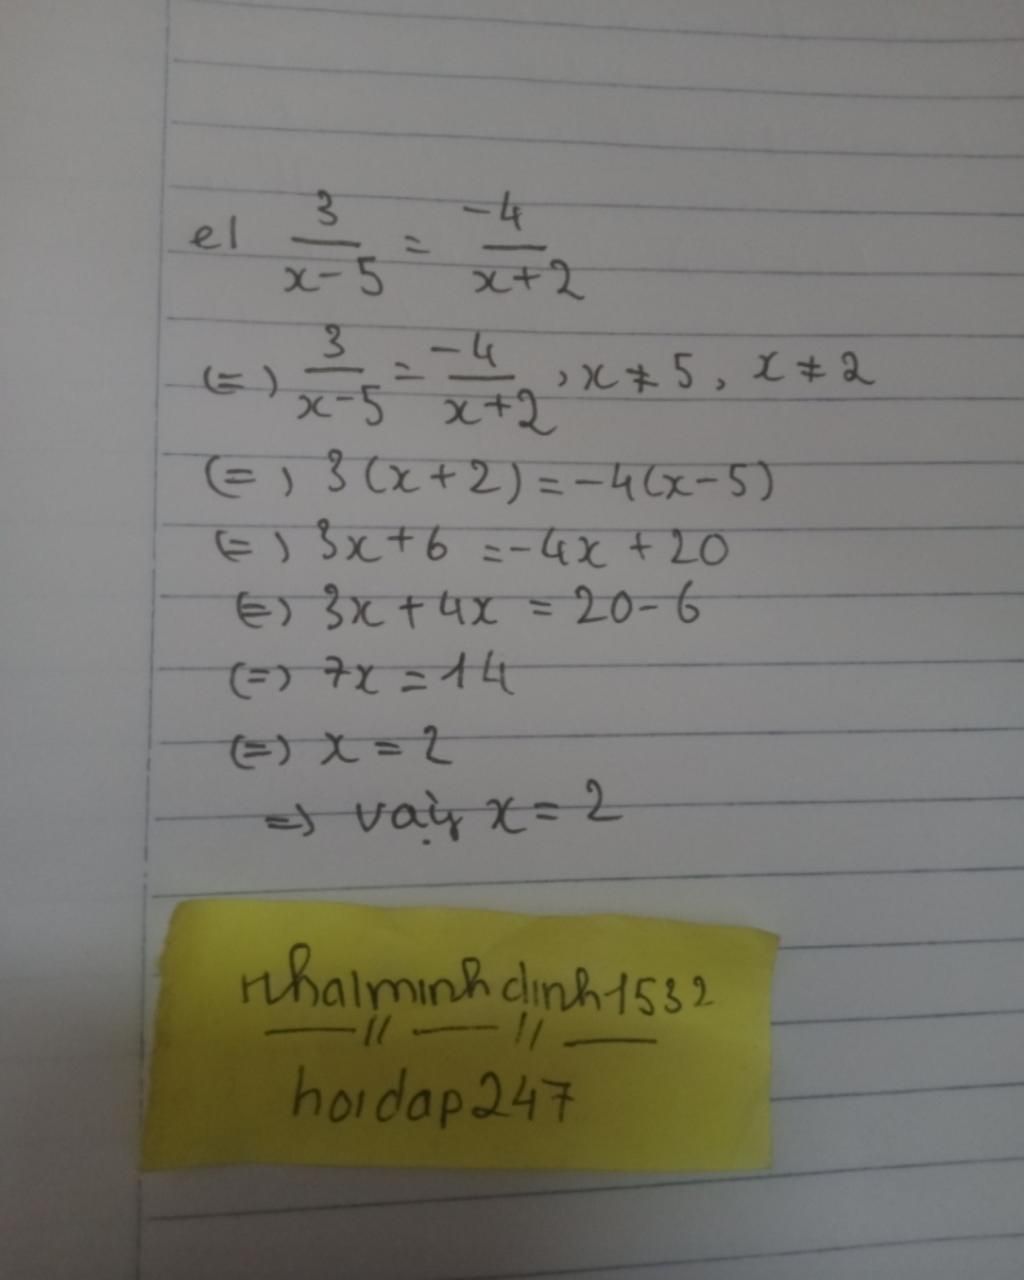 e) 3/(x-5) = -4/(x+2)
(=) 3/(x-5) = -4/(x+2), x ≠ 5, x ≠ 2
(=) 3(x+2) = -4(x-5)
(=) 3x+6 = -4x+20
(=) 3x+4x = 20-6
(=) 7x = 14
(=) x = 2
=) vậy x = 2
nhaiminhdinh1532
hoidap247